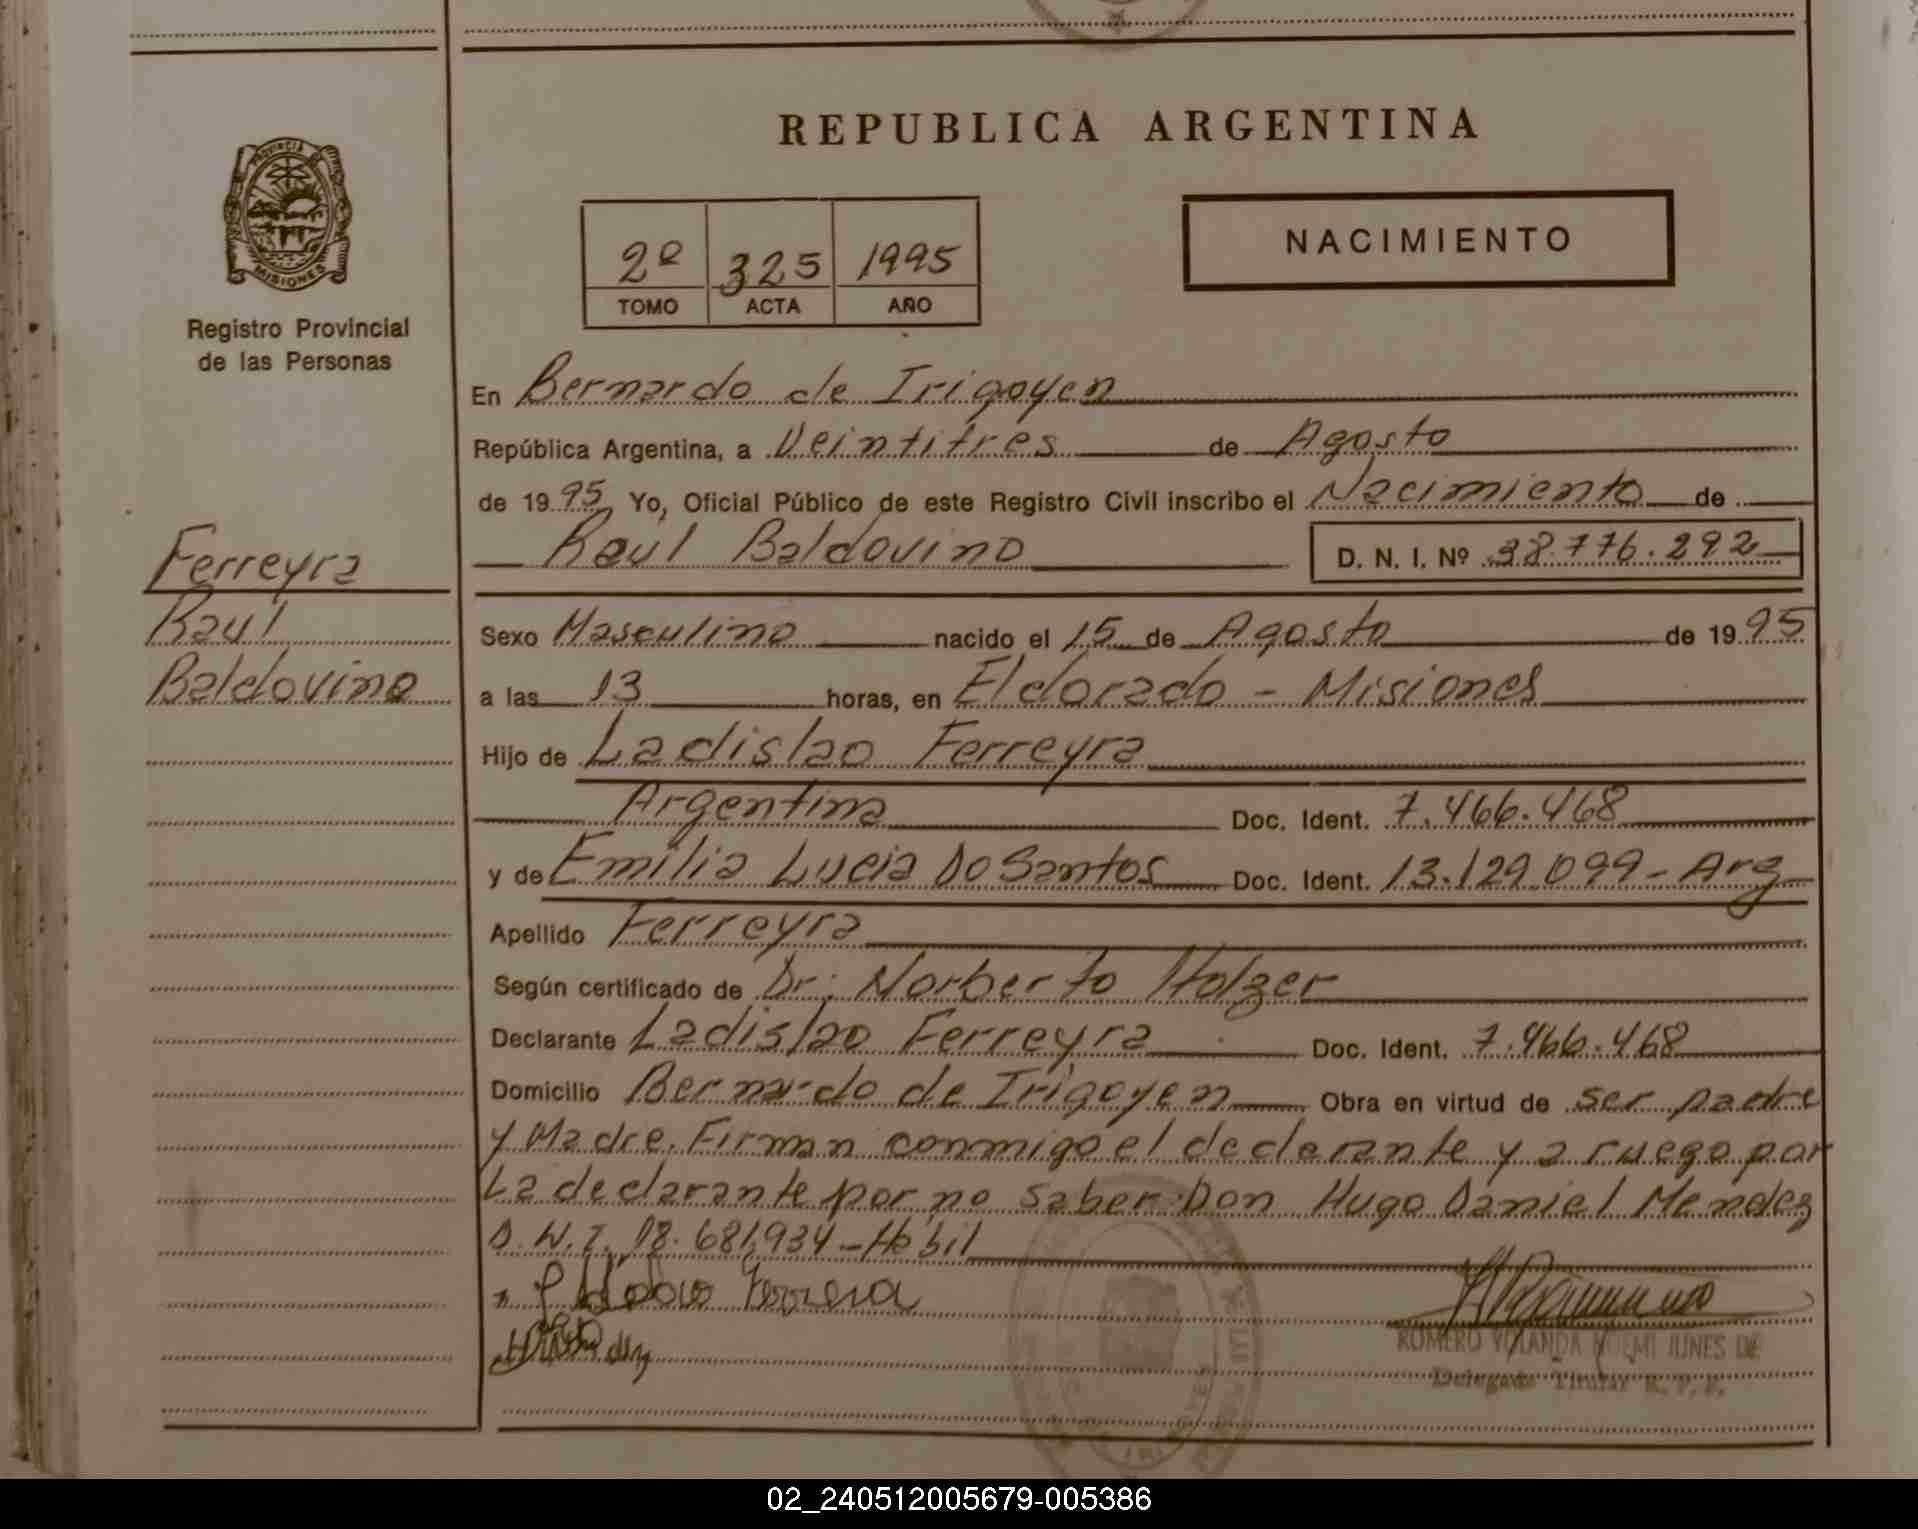 REPUBLICA ARGENTINA
PROVINCIA DE
MISIONES
Registro Provincial
de las Personas
2º 325 1995
TOMO ACTA AÑO
NACIMIENTO
En Bernardo de Irigoyen
República Argentina, a Veintitres de Agosto
de 1995 Yo, Oficial Público de este Registro Civil inscribo el Nacimiento de
Raúl Baldovino D. N. I. Nº 38.776.292
Ferreyra
Raul
Baldovino
Sexo Masculino nacido el 15 de Agosto de 1995
a las 13 horas, en Eldorado - Misiones
Hijo de Ladislao Ferreyra
Argentina Doc. Ident. 7.466.468
y de Emilia Lucia Do Santos Doc. Ident. 13.129.099 - Arg
Apellido Ferreyra
Según certificado de Dr: Norberto Holzer
Declarante Ladislao Ferreyra Doc. Ident. 7.466.468
Domicilio Bernardo de Irigoyen Obra en virtud de ser padre
y Madre. Firman conmigo el declarante y a ruego por
La declarante por no saber Don Hugo Daniel Mendez
D.N.I. 18.681.934 - Hábil
ROMERO YOLANDA NOEMI JUNES DE
Delegada Titular R. P. P.
02_240512005679-005386